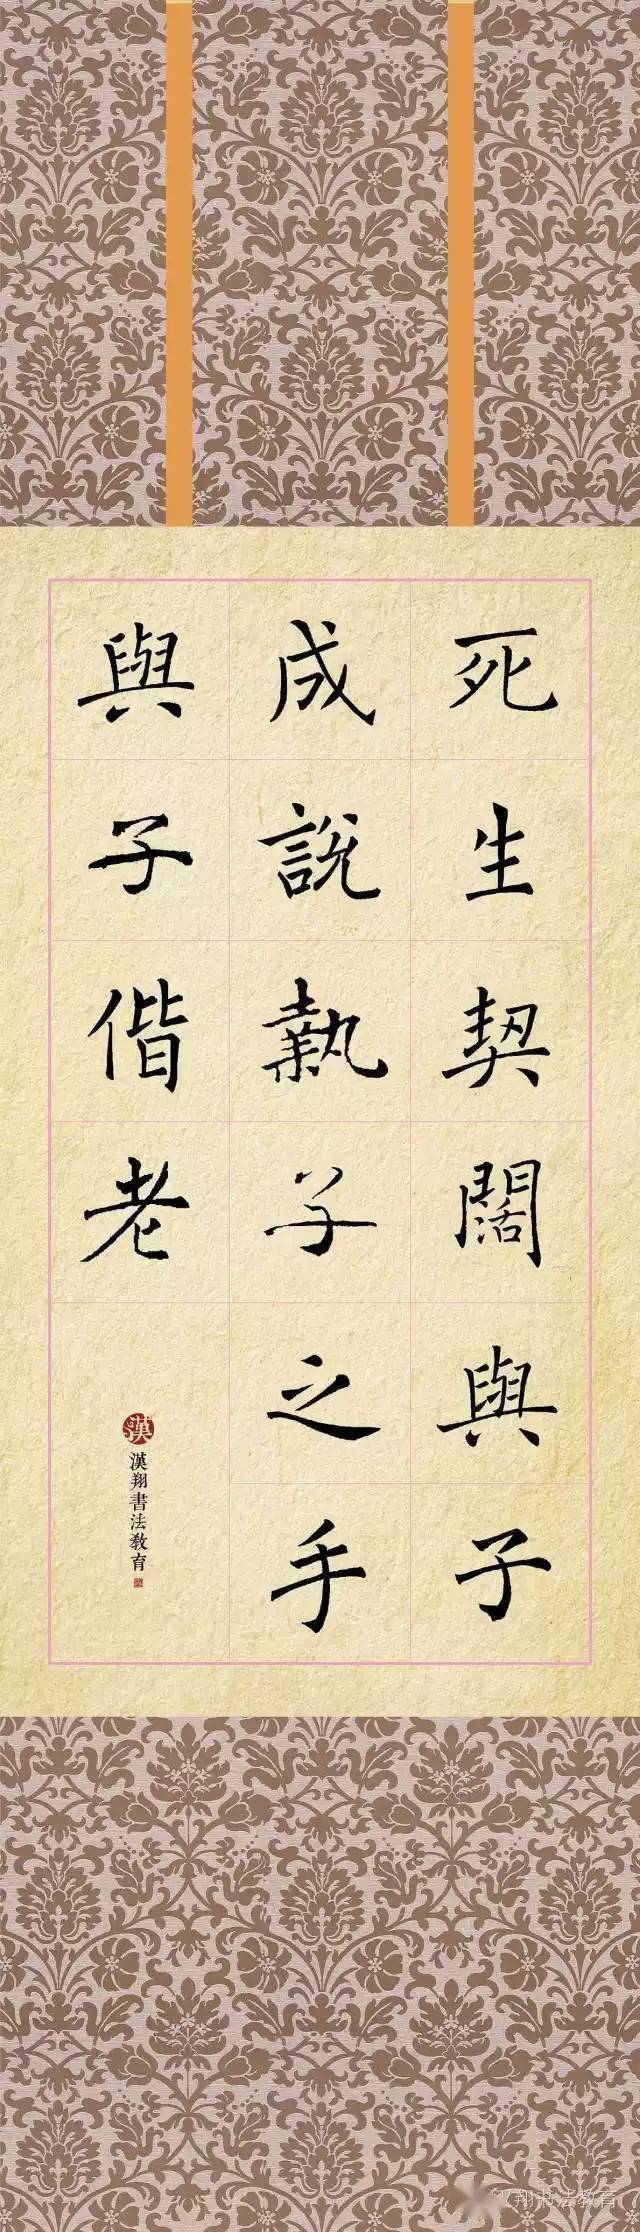 死生契闊與子
成說執子之手
與子偕老
漢
漢翔書法教育
翔书法教育